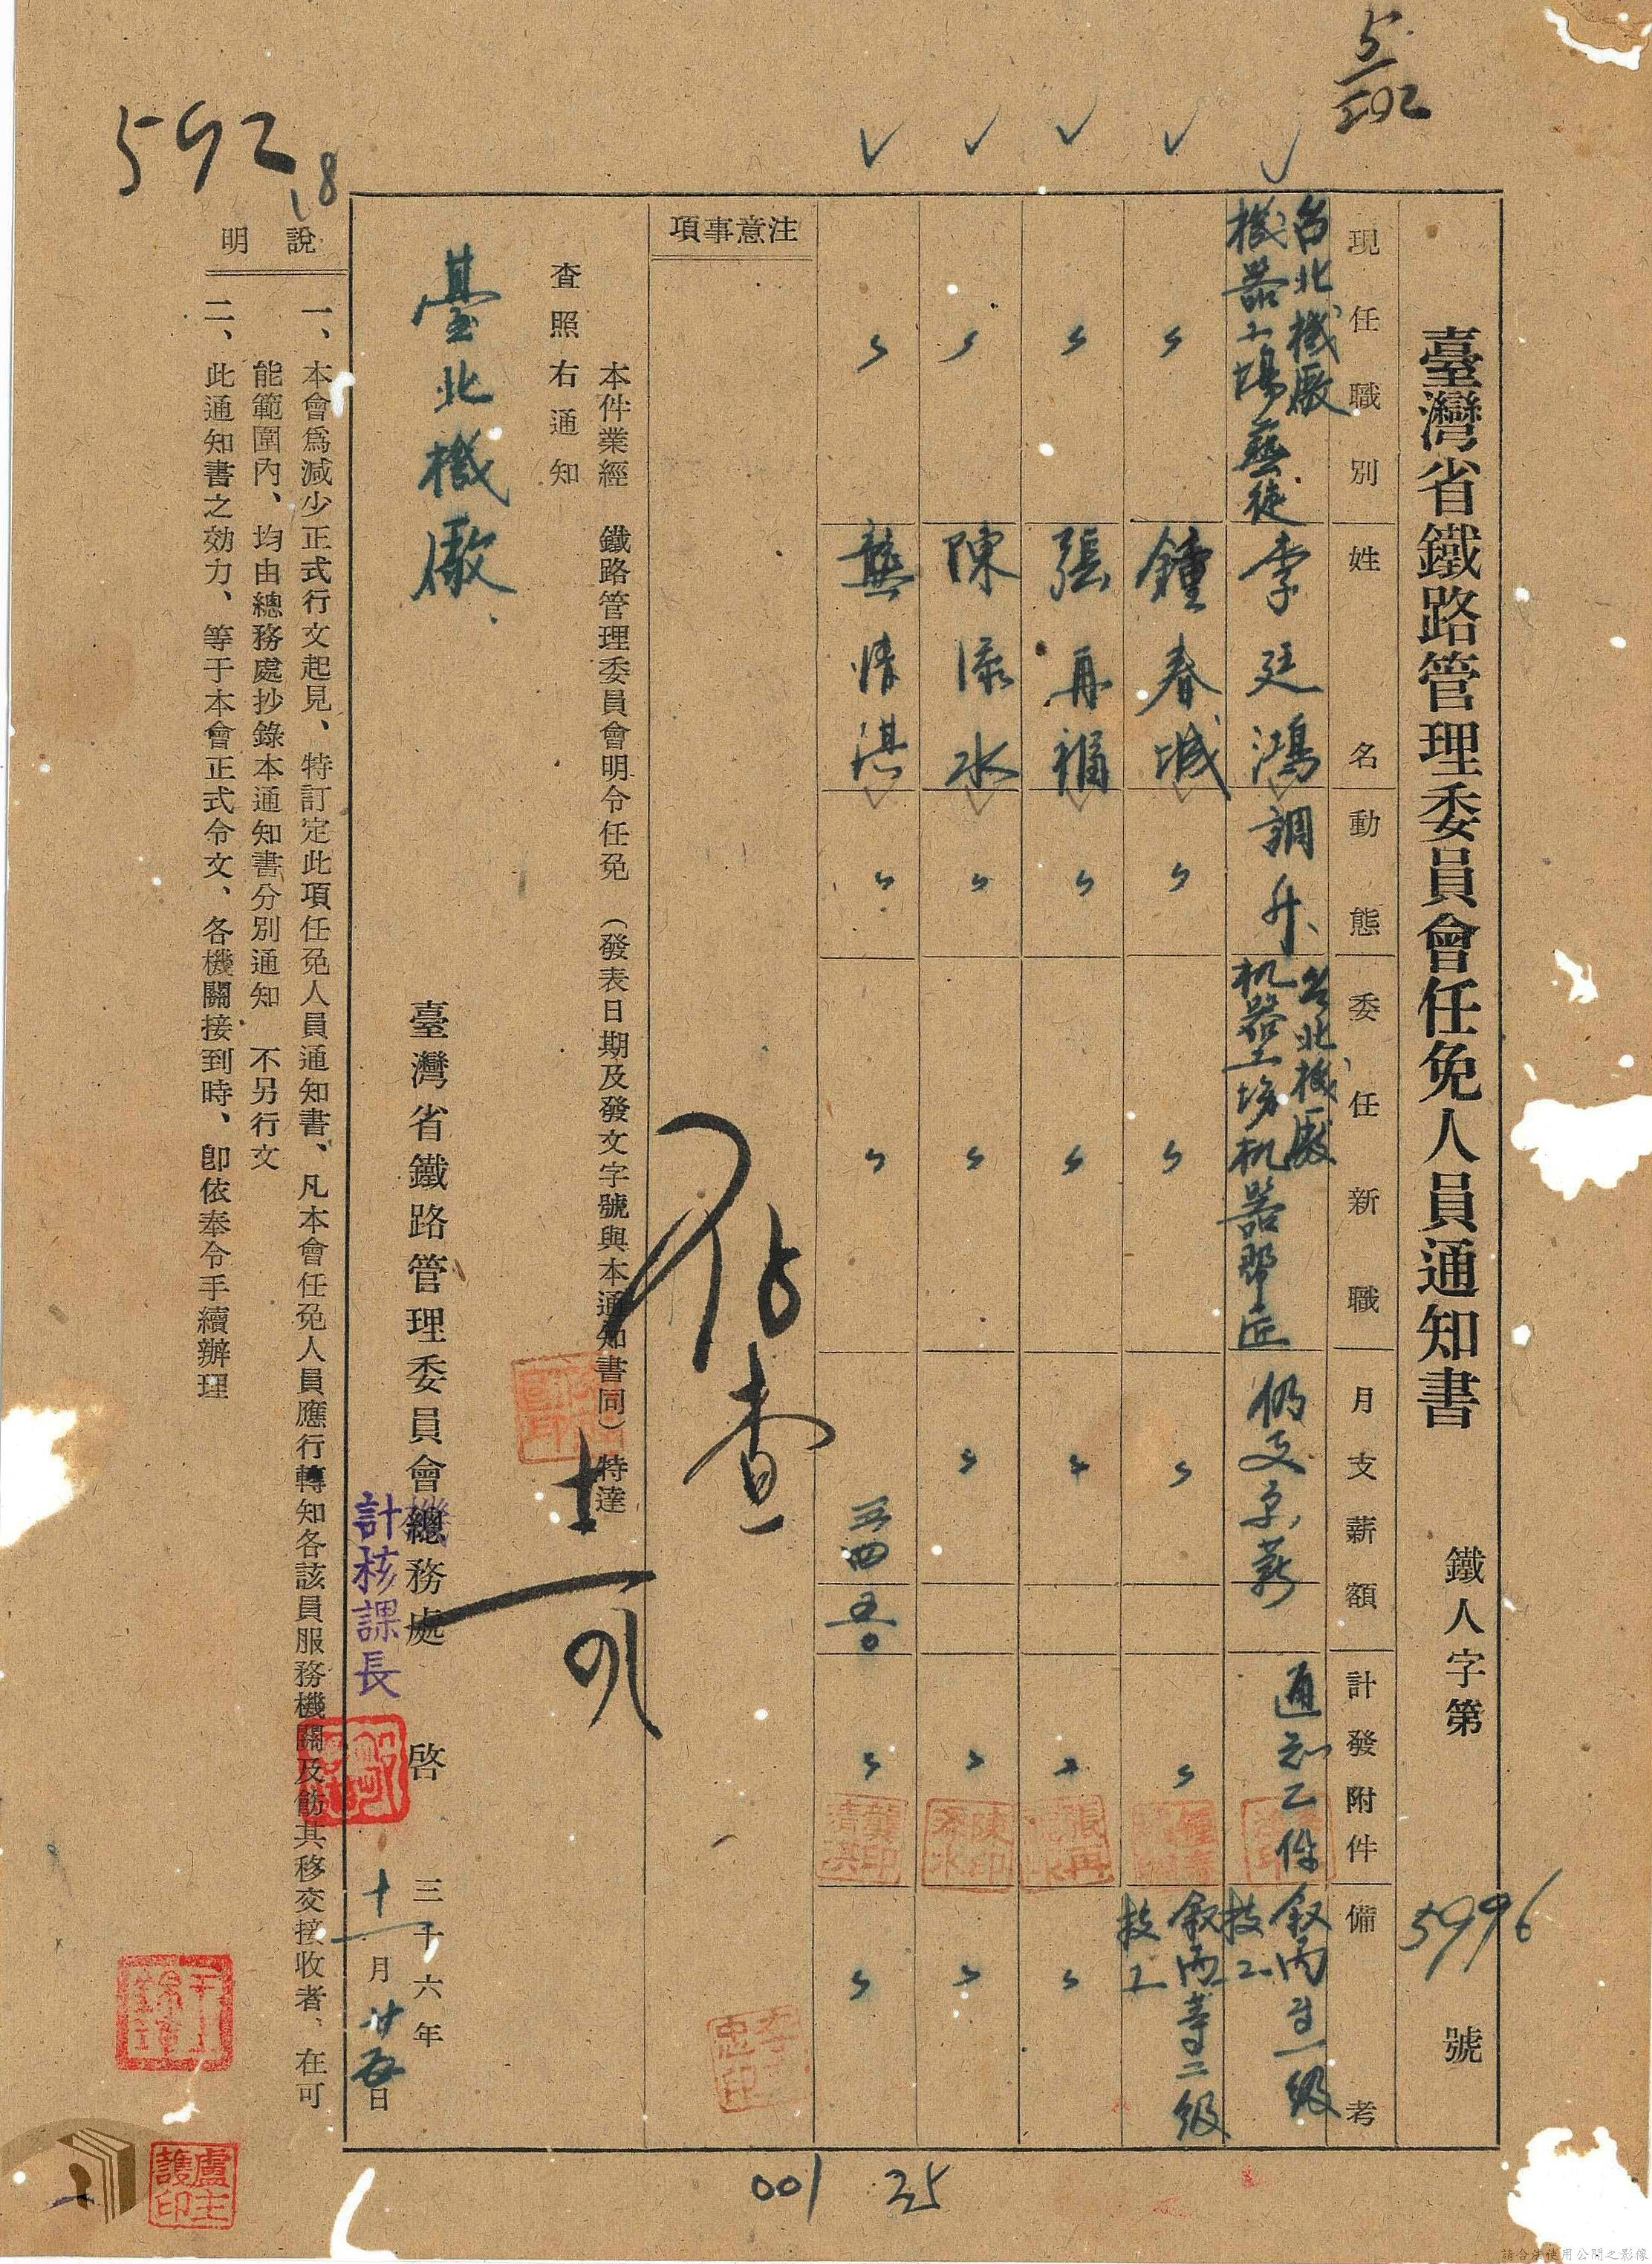 5/592
592
18
臺灣省鐵路管理委員會任免人員通知書
鐵人字第5996號
現任職別
姓名
動態
委任新職
月支薪額
計發附件
備考
台北機廠
機器工場藝徒
李廷鴻
調升
台北機廠
机器工場机器幫匠
仍支原薪
通知乙件
敘丙等一級
技工
〃
鍾春城
〃
〃
〃
〃
敘丙等二級
技工
〃
張再福
〃
〃
〃
〃
〃
〃
陳添水
〃
〃
〃
〃
〃
〃
龔情淇
〃
〃
三四五〇
〃
〃
注意事項
存查
本件業經 鐵路管理委員會明令任免 (發表日期及發文字號與本通知書同) 特達
查照右通知
臺北機廠
臺灣省鐵路管理委員會總務處 啓
機
計核課長
三十六年
十一月廿五日
說明
一、本會爲減少正式行文起見、特訂定此項任免人員通知書、凡本會任免人員應行轉知各該員服務機關及飭其移交接收者、在可
能範圍內、均由總務處抄錄本通知書分別通知 不另行文
二、此通知書之効力、等于本會正式令文、各機關接到時、卽依奉令手續辦理
龔印清淇
陳印添水
盧主護印
001
35
請合法使用公開之影像